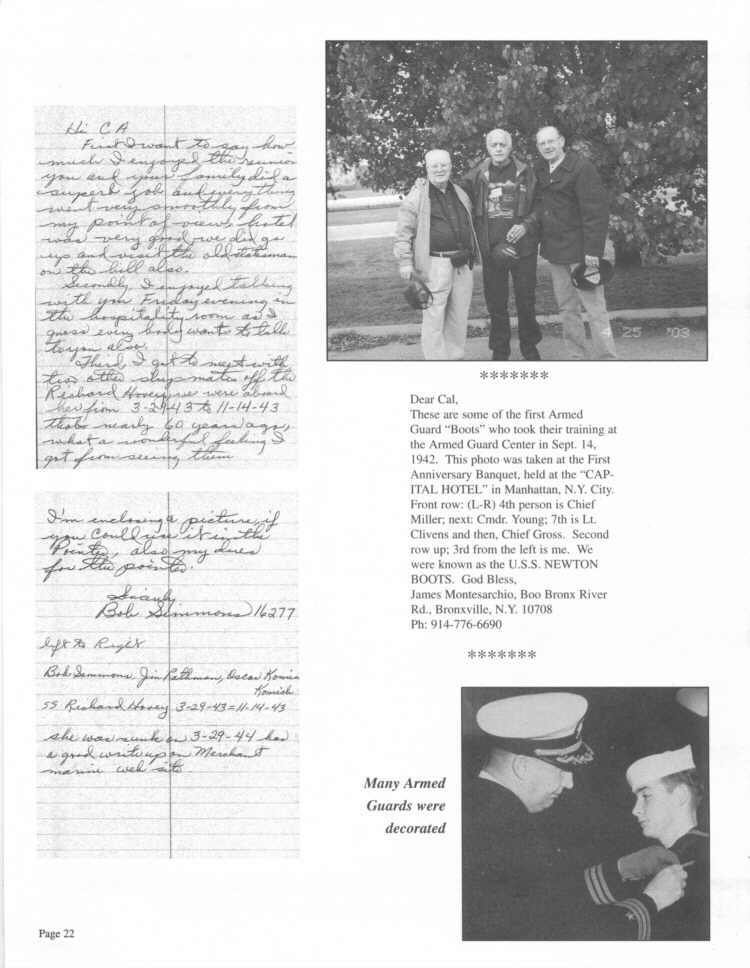 Hi CA
First I want to say how
much I enjoyed the reunion
you and your family did a
superb job and everything
went very smoothly from
my point of view, hotel
was very good we did go
up and visit the old statesman
on the hill also.
Secondly I enjoyed talking
with you Friday evening in
the hospitality room as I
guess every body wants to talk
to you also.
Third, I got to meet with
two other shipmates off the
Richard Hovey, we were aboard
her from 3-29-43 to 11-14-43
thats nearly 60 years ago,
what a wonderful feeling I
got from seeing them
I'm enclosing a picture, if
you could use it in the
Pointer, also my dues
for the pointer.
Bob Simmons 16277
left to Right
Bob Simmons, Jim Rathman, Oscar
SS Richard Hovey 3-29-43=11-14-43
she was sunk on 3-29-44 has
a good write up on Merchant
marine web site.
4 25 '03
*******
Dear Cal,
These are some of the first Armed
Guard “Boots” who took their training at
the Armed Guard Center in Sept. 14,
1942. This photo was taken at the First
Anniversary Banquet, held at the “CAP-
ITAL HOTEL” in Manhattan, N.Y. City.
Front row: (L-R) 4th person is Chief
Miller; next: Cmdr. Young; 7th is Lt.
Clivens and then, Chief Gross. Second
row up; 3rd from the left is me. We
were known as the U.S.S. NEWTON
BOOTS. God Bless,
James Montesarchio, Boo Bronx River
Rd., Bronxville, N.Y. 10708
Ph: 914-776-6690
*******
Many Armed
Guards were
decorated
Page 22